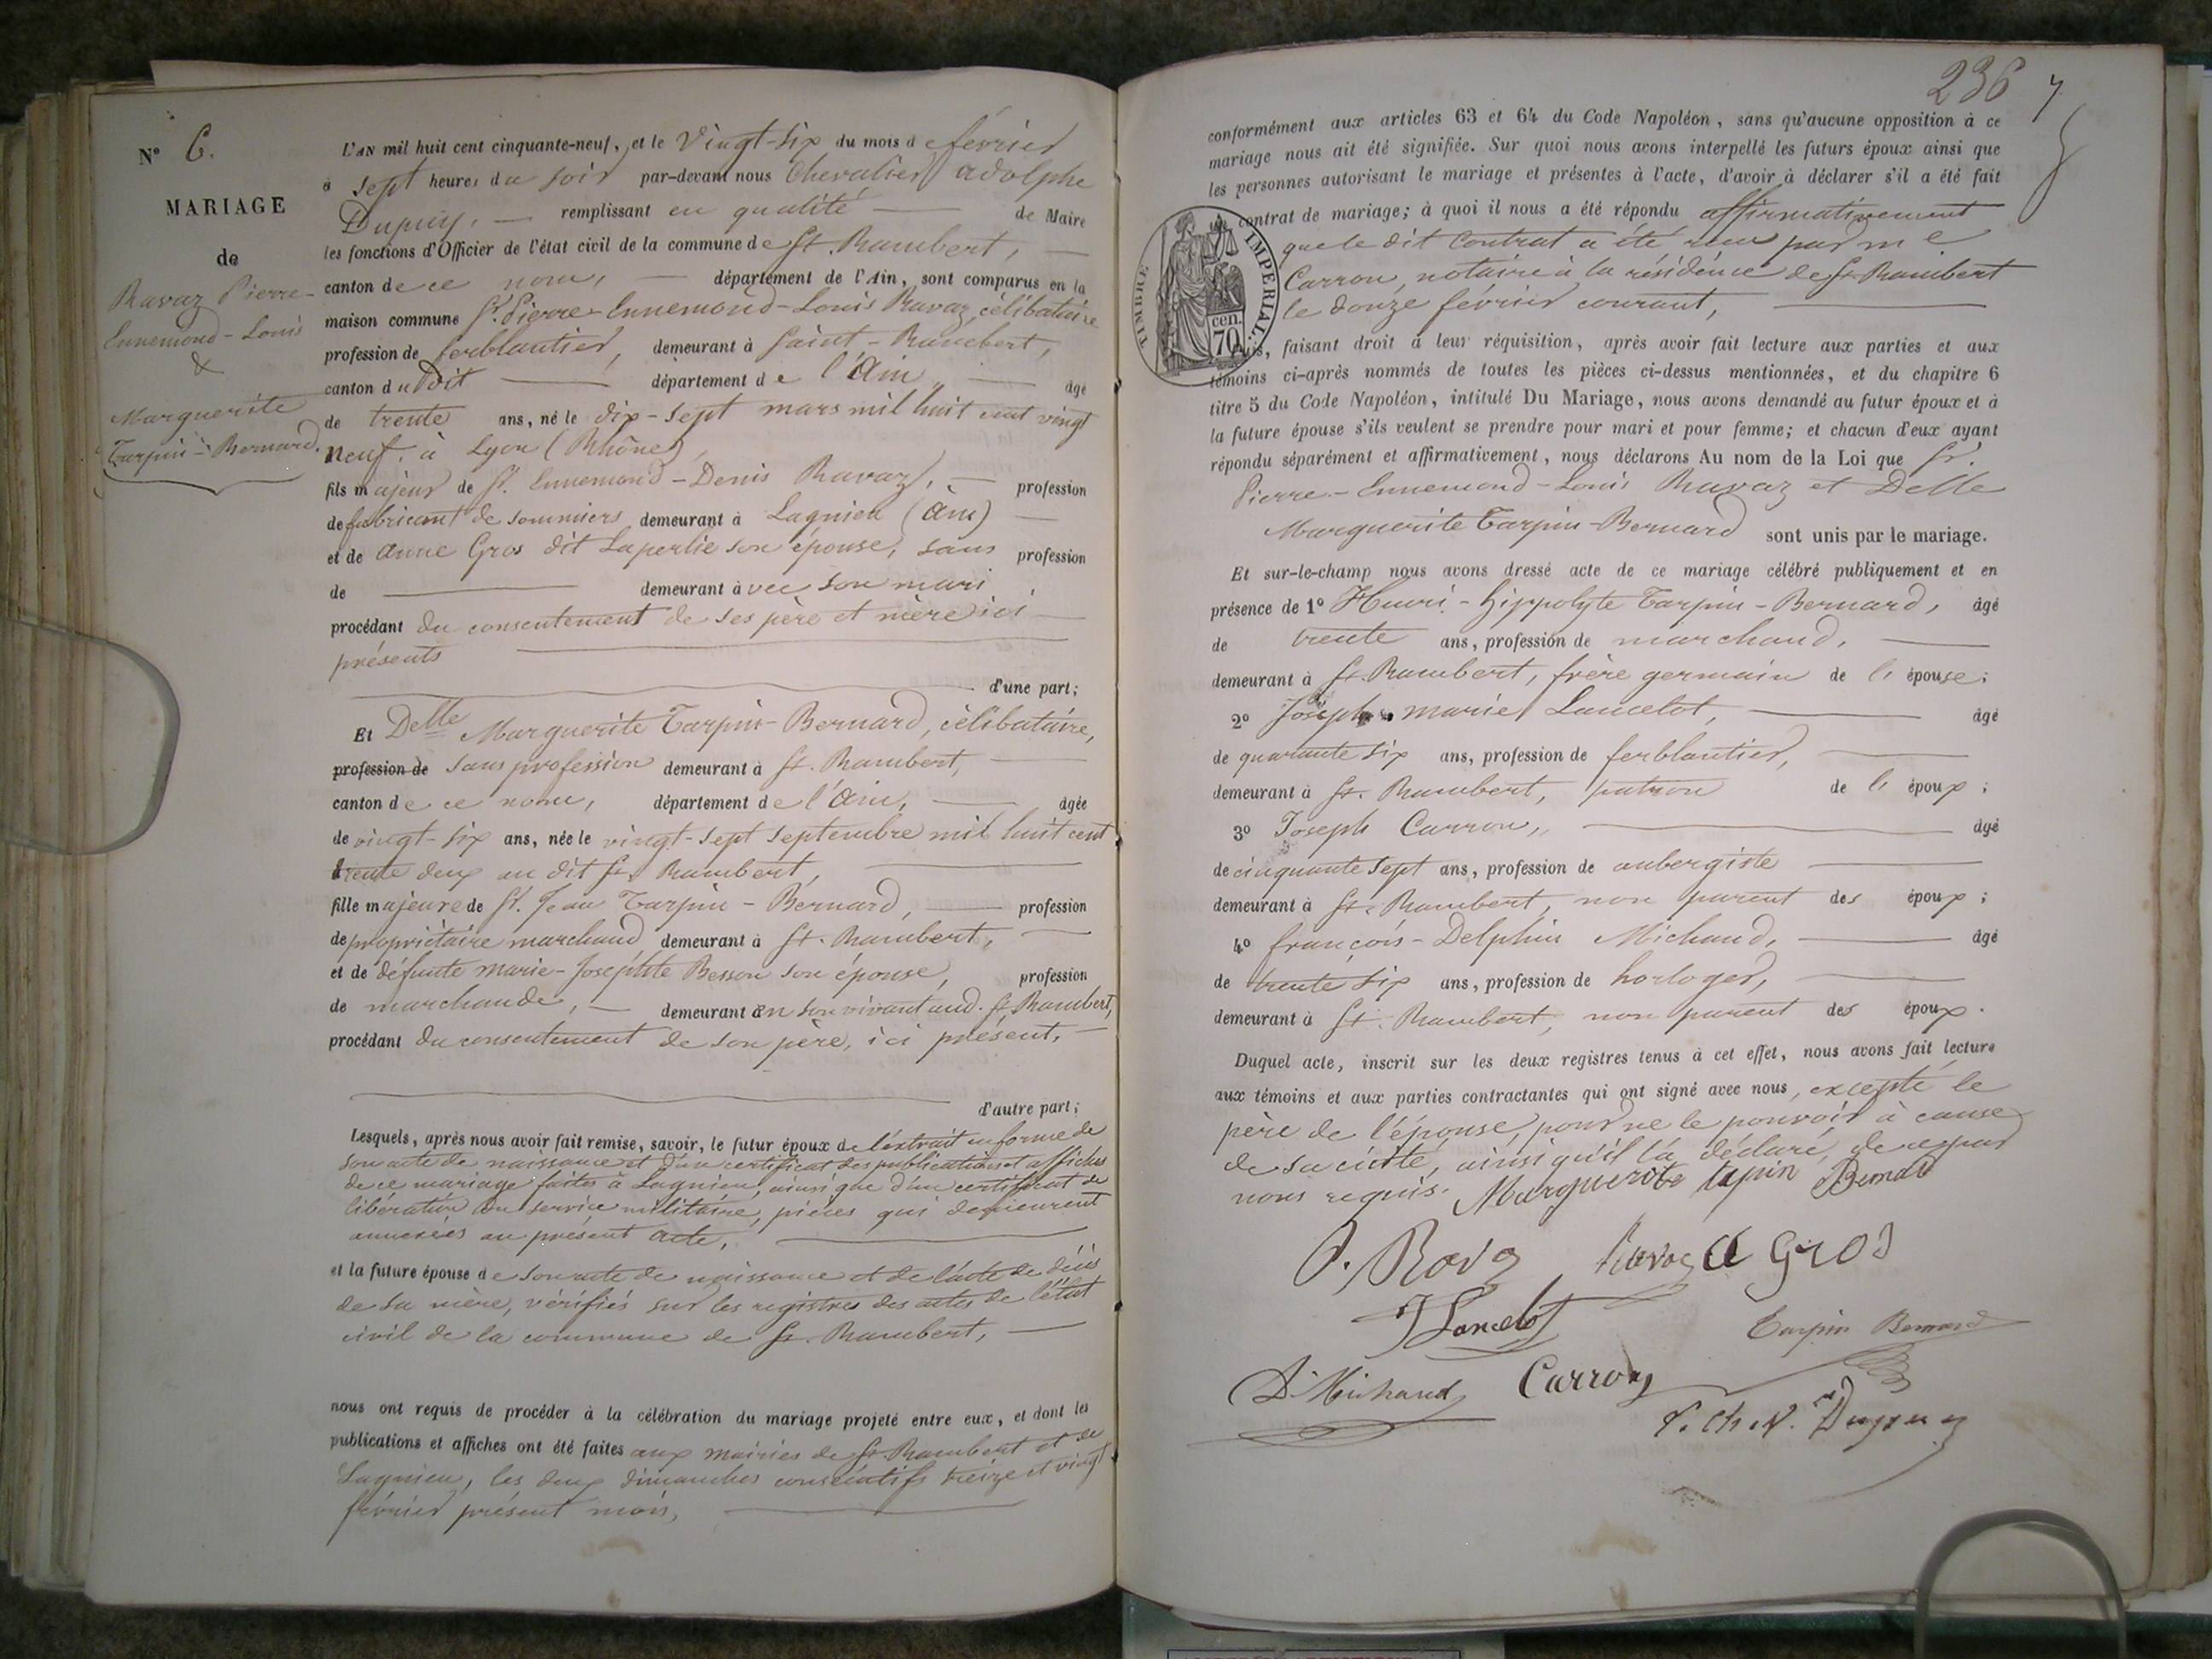 N° 6.
MARIAGE
de
Ravaz Pierre-
Ennemond-Louis
&
Marguerite
Tarpin-Bernard.
L'AN mil huit cent cinquante-neuf, et le Vingt-Six du mois de février
à Sept heures du soir par-devant nous Chevalier Adolphe
Dupuy, — remplissant en qualité — de Maire
les fonctions d'Officier de l'état civil de la commune de St. Rambert, —
canton de ce nom, — département de l'Ain, sont comparus en la
maison commune Sr. Pierre-Ennemond-Louis Ravaz, célibataire
profession de ferblantier, demeurant à Saint-Rambert,
canton du Dit — département de l'Ain, — âgé
de trente ans, né le dix-sept mars mil huit cent vingt
neuf à Lyon (Rhône),
fils majeur de Sr. Ennemond-Denis Ravaz, — profession
de fabricant de sommiers demeurant à Lagnieu (Ain) —
et de Anne Gros dit Laperlie son épouse, sans profession
de — demeurant avec son mari
procédant du consentement de ses père et mère ici
présents —
— d'une part;
Et Delle Marguerite Tarpin-Bernard, célibataire,
profession de sans profession demeurant à St. Rambert, —
canton de ce nom, département de l'Ain, — âgée
de vingt-six ans, née le vingt-sept septembre mil huit cent
trente deux au dit St. Rambert, —
fille majeure de Sr. Jean Tarpin-Bernard, — profession
de propriétaire marchand demeurant à St. Rambert, —
et de défunte Marie-Josephte Besson son épouse, profession
de marchande, — demeurant en son vivant aud. St. Rambert,
procédant du consentement de son père, ici présent, —
— d'autre part;
Lesquels, après nous avoir fait remise, savoir, le futur époux de l'extrait en forme de
son acte de naissance et d'un certificat des publications et affiches
de ce mariage faites à Lagnieu, ainsi que d'un certificat de
libération du service militaire, pièces qui demeurent
annexées au présent acte, —
et la future épouse de son acte de naissance et de l'acte de décès
de sa mère, vérifiés sur les registres des actes de l'état
civil de la commune de St. Rambert, —
nous ont requis de procéder à la célébration du mariage projeté entre eux, et dont les
publications et affiches ont été faites aux mairies de St. Rambert et de
Lagnieu, les deux dimanches consécutifs treize et vingt
février présent mois, —
236
7
conformément aux articles 63 et 64 du Code Napoléon, sans qu'aucune opposition à ce
mariage nous ait été signifiée. Sur quoi nous avons interpellé les futurs époux ainsi que
les personnes autorisant le mariage et présentes à l'acte, d'avoir à déclarer s'il a été fait
un contrat de mariage; à quoi il nous a été répondu affirmativement
que le dit Contrat a été reçu par Me
Carron, notaire à la résidence de St. Rambert
le douze février courant, —
TIMBRE IMPÉRIAL.
cen.
70
Puis, faisant droit à leur réquisition, après avoir fait lecture aux parties et aux
témoins ci-après nommés de toutes les pièces ci-dessus mentionnées, et du chapitre 6
titre 5 du Code Napoléon, intitulé Du Mariage, nous avons demandé au futur époux et à
la future épouse s'ils veulent se prendre pour mari et pour femme; et chacun d'eux ayant
répondu séparément et affirmativement, nous déclarons Au nom de la Loi que Sr.
Pierre-Ennemond-Louis Ravaz et Delle
Marguerite Tarpin-Bernard sont unis par le mariage.
Et sur-le-champ nous avons dressé acte de ce mariage célébré publiquement et en
présence de 1° Henri-Hippolyte Tarpin-Bernard, âgé
de trente ans, profession de marchand, —
demeurant à St. Rambert, frère germain de l' épouse;
2° Joseph Marie Lancelot, — âgé
de quarante six ans, profession de ferblantier, —
demeurant à St. Rambert, patron de l' époux;
3° Joseph Carron, — âgé
de cinquante sept ans, profession de aubergiste —
demeurant à St. Rambert, non parent des époux;
4° François-Delphin Michaud, — âgé
de trente six ans, profession de horloger, —
demeurant à St. Rambert, non parent des époux.
Duquel acte, inscrit sur les deux registres tenus à cet effet, nous avons fait lecture
aux témoins et aux parties contractantes qui ont signé avec nous, excepté le
père de l'épouse, pour ne le pouvoir à cause
de sa cécité, ainsi qu'il l'a déclaré, de ce par
nous requis. Marguerite tapin Bernard
Ravaz A Gros
J Lancelot
Tarpin Bernard
D. Michaud Carron
Dupuy